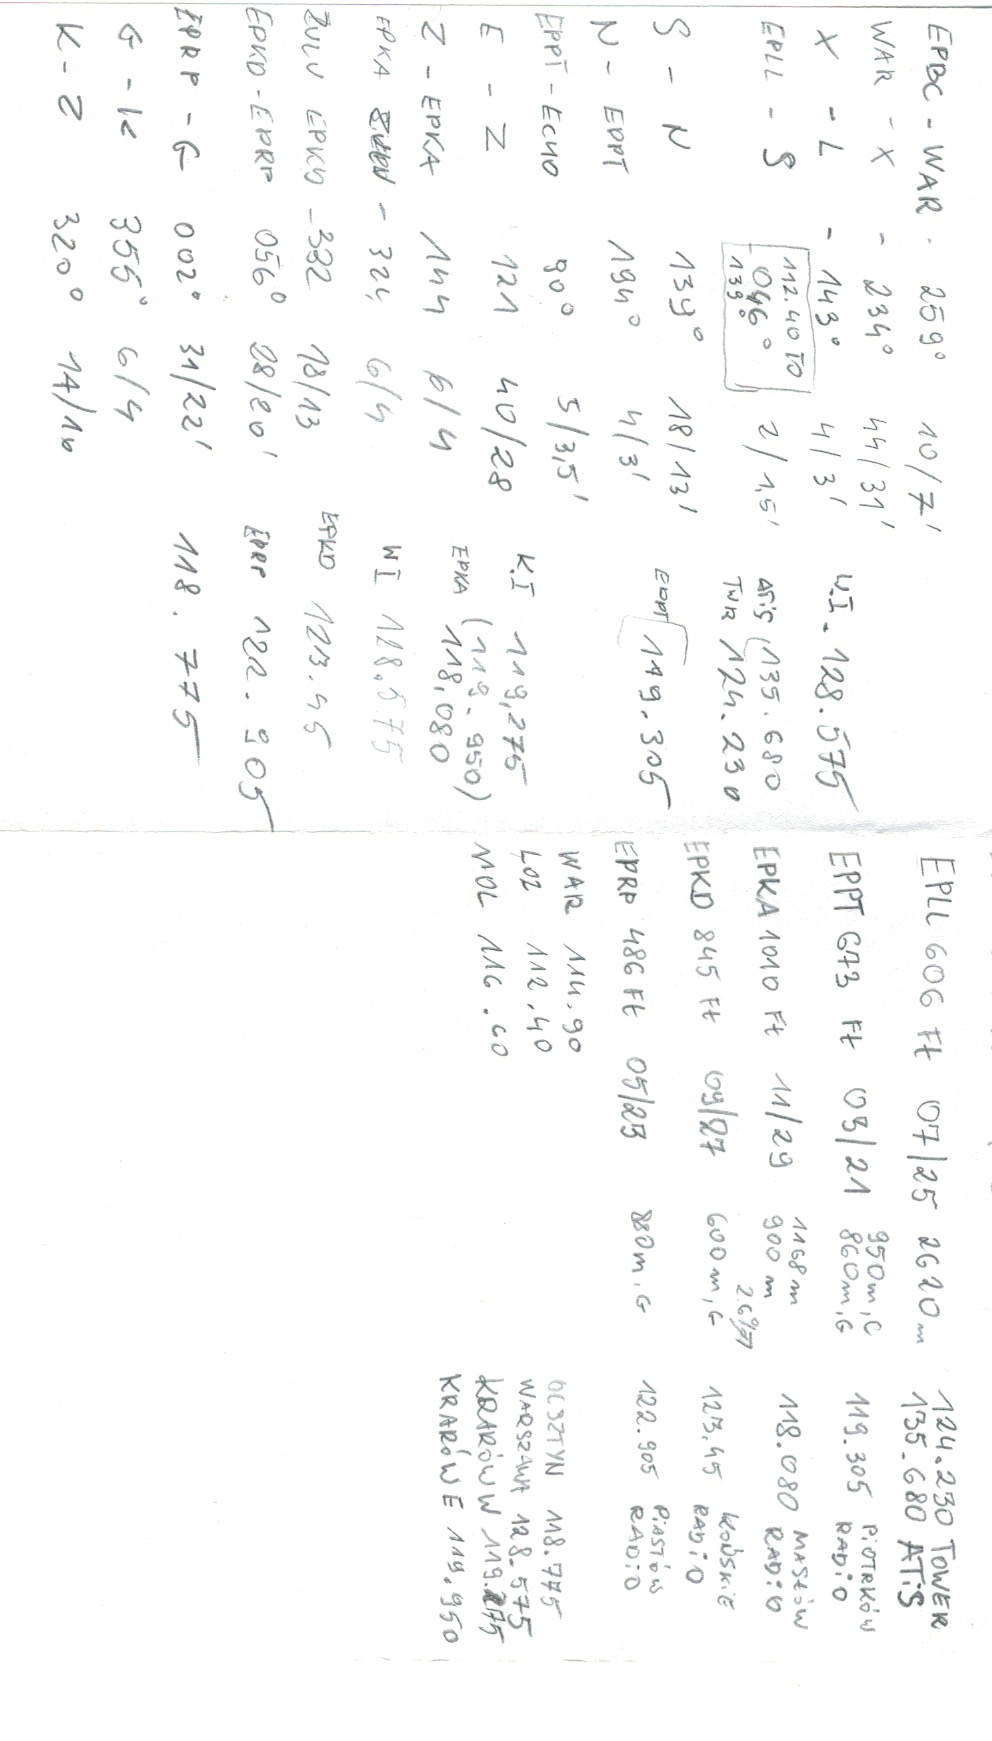 EPBC - WAR - 259° 10/7'
WAR - X - 234° 44/31'
X - L - 143° 4/3'
W.I. 128.575
EPLL - S 112.40 TO 2/1,5'
046°
139°
ATiS 135.680
TWR 124.230
S - N 139° 18/13'
EPPT 119.305
N - EPPT 194° 4/3'
EPPT - ECHO 90° 5/3,5'
E - Z 121 40/28
K.I 119,275
(119.950)
EPKA 118,080
Z - EPKA 144 6/4
EPKA ZULU - 324 6/4
WI 128.575
ZULU EPKD - 332 18/13
EPKD 123.45
EPKD - EPRP 056° 28/20'
EPRP 122.905
EPRP - G 002° 31/22'
118.775
G - K 355° 6/4
K - Z 320° 14/10
EPLL 606 Ft 07/25 2620m 124.230 TOWER
135.680 ATiS
EPPT 673 Ft 03/21 950m, C
860m, G
119.305 PiOTRKÓW
RADiO
EPKA 1010 Ft 11/29 1168 m
900 m
118.080 MASŁÓW
RADiO
EPKD 845 Ft 09/27 600m, G 123.45 KOŃSKiE
RADiO
EPRP 486 Ft 05/23 880m, G 122.905 PiASTÓW
RADiO
WAR 114.90
LOZ 112.40
MOL 116.60
OLSZTYN 118.775
WARSZAWA 128.575
KRARÓW W 119.275
KRARÓW E 119.950